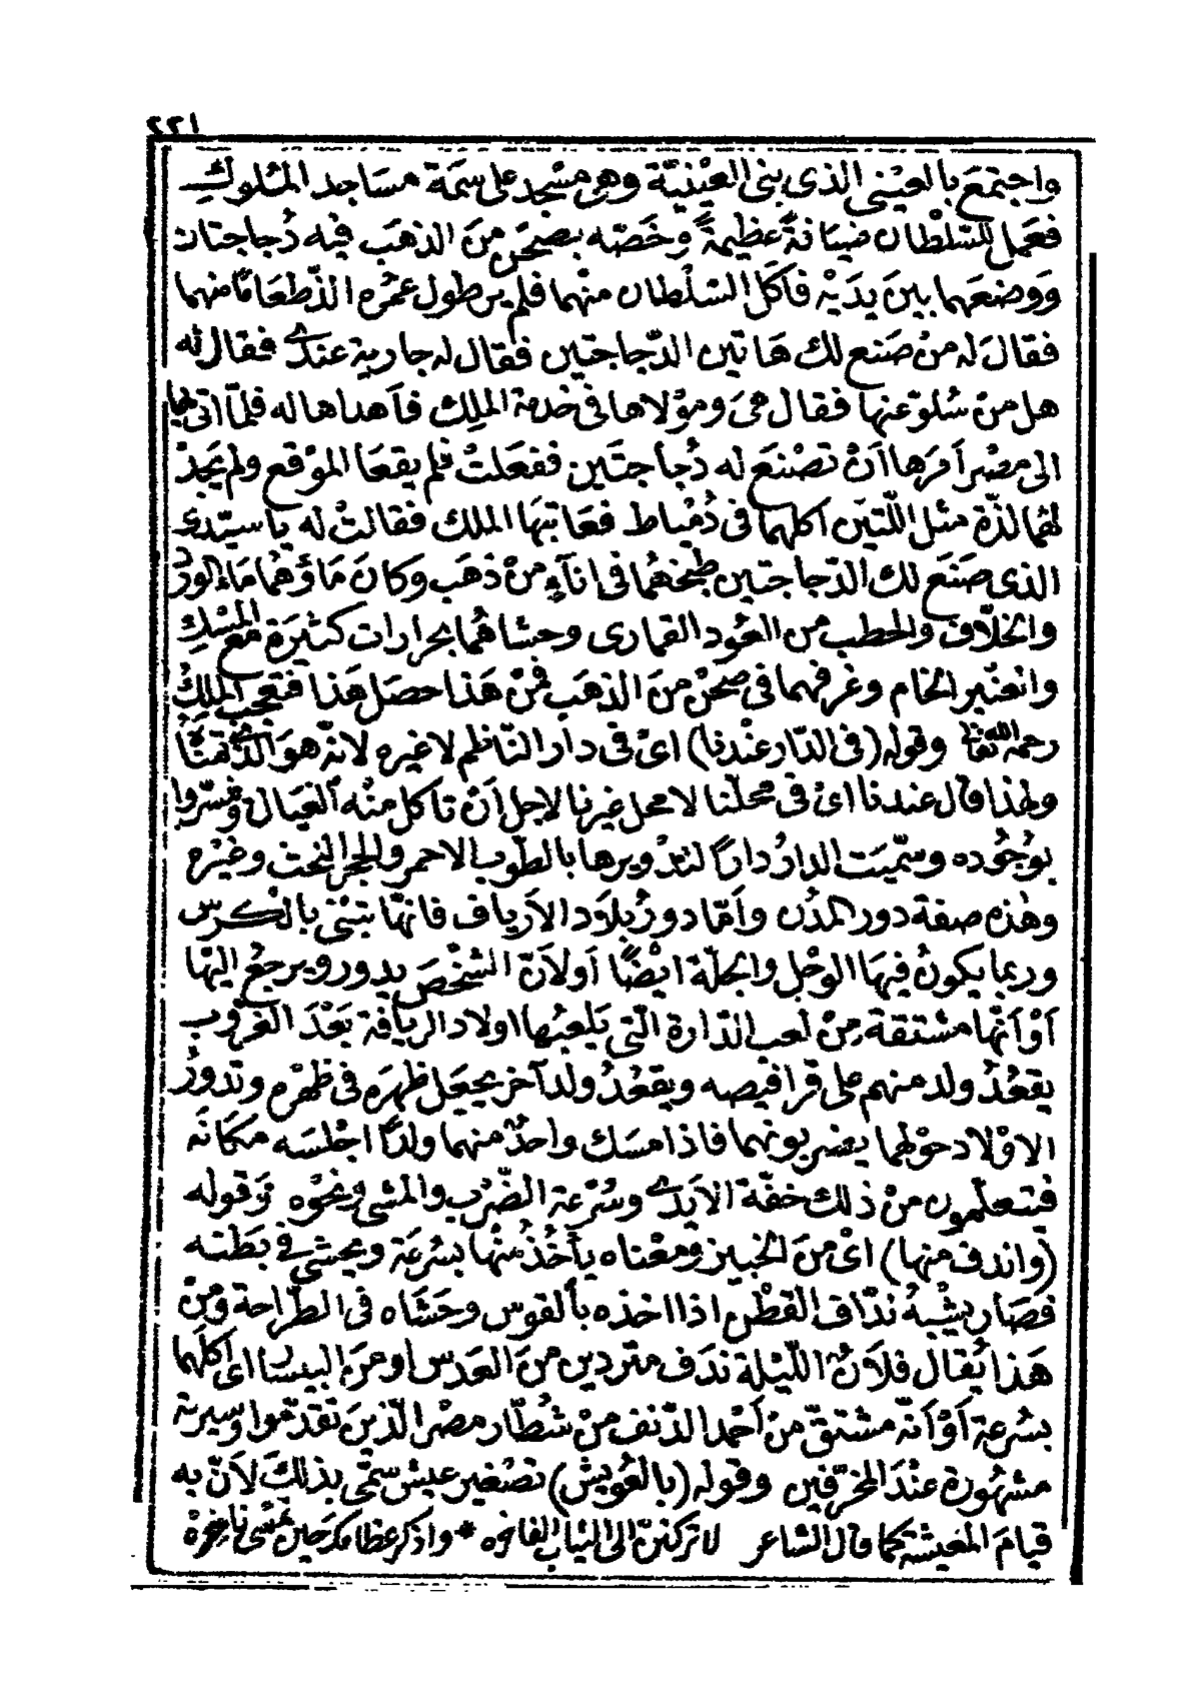 ٢٢١
واجتمَعَ بالعيْنى الذى بنى العَيْنيّة وهى مسْجد على سمَة مسَاجد الملوك
فعَمل للسّلْطان ضيَافةً عَظيمةً وخَصّه بصَحن منَ الذهَب فيه دُجاجتان
ووضعَهما بين يدَيْه فاكَل السّلْطان منهما فلم ير طول عمْره الذّ طعَامًا منهما
فقالَ له منْ صَنع لك هَاتين الدّجاجتين فقال له جارية عندى فقال له
هل منْ سُلوّ عنها فقال هىَ ومؤلاها فى خدمة الملِك فأهداها له فلمّا اتى بها
الى مصْر أمَرها أنْ تصْنَع له دُجاجتَين ففعَلتْ فلم يقعَا الموْقع ولم يَجدْ
لهما لذّة مثل اللّتين اكلهما فى دُمْياط فعَاتبَها الملك فقالتْ له يا سيّدى
الذى صَنَع لك الدّجاجتين طبخهُما فى انآءٍ منْ ذهَب وكانَ مَاؤهُما مَاء الورْد
والخلّاف والحطب من العُود القمارى وحشاهُما بحرارات كثيَرة معَ المسْكِ
والعنْبر الخام وغرفهما فى صَحْن منَ الذهَب فمنْ هَذا حصَل هَذا فتعجبَ الملِكُ
رحمه الله تعالى وقوله (فى الدّار عنْدنا) اىْ فى دار النّاظم لا غيره لانّه هوَ الذى
ولهذا قال عندنا اىْ فى محلّنا لا محل غيرنا لاجل أنْ تاكل منْه العيَال ويسّروا
بوُجُوده وسمّيَت الدارُ دارًا لتدْويرها بالطّوب الاحمر والحجر النحت وغيْره
وهذه صفة دور المدُن وأمّا دورُ بلاَد الأرياف فانهّا تبْنى بالكرس
وربما يكونُ فيهَا الوحْل والجلّة ايضًا أو لأنّ الشّخْصَ يدور ويرجعُ اليهَا
أوْ أنّها مشتقة منْ لعب الدّارة الّتى يَلعبُها اولاد الريافة بَعْدَ الغرُوب
يقعُدُ ولد منهم على قرافيصه ويقعُدُ ولد آخر يجعَل ظهرَه فى ظهْره وتدورُ
الاوْلاد حوْلهما يضربونهما فاذا امسَك واحدٌ منهما ولدًا اجْلسَه مكَانَه
فتعلّمون منْ ذلك خفّة الايَدى وسُرْعة الضّرْب والمشى ونحْوه وَقوله
(واندف منها) اىْ منَ الخبيز ومعْناه يأخُذُ منْها بسْرعَة ويحشى فى بَطنه
فصَار يشْبهُ ندّافَ القطْن اذا اخذه بالقوس وحَشَاه فى الطرّاحة ومنْ
هَذا يُقال فلاَنٌ اللّيْلة ندَف متردين منَ العَدس او منَ البيسَار اى اكلَهما
بسُرعة أوْ أنّه مشتقّ منْ أحْمد الدّنف منْ شُطّار مصْر الّذينَ تقدّموا وسيرته
مشهُورة عنْدَ المخرّفين وقوله (بالعُويْش) تصْغير عيش سمّى بذلكَ لأنّ به
قيامَ المَعيشة كما قال الشاعر لا تركننّ الى الثياب الفاخره * واذكر عظامكَ حين تمْسى ناخرهْ